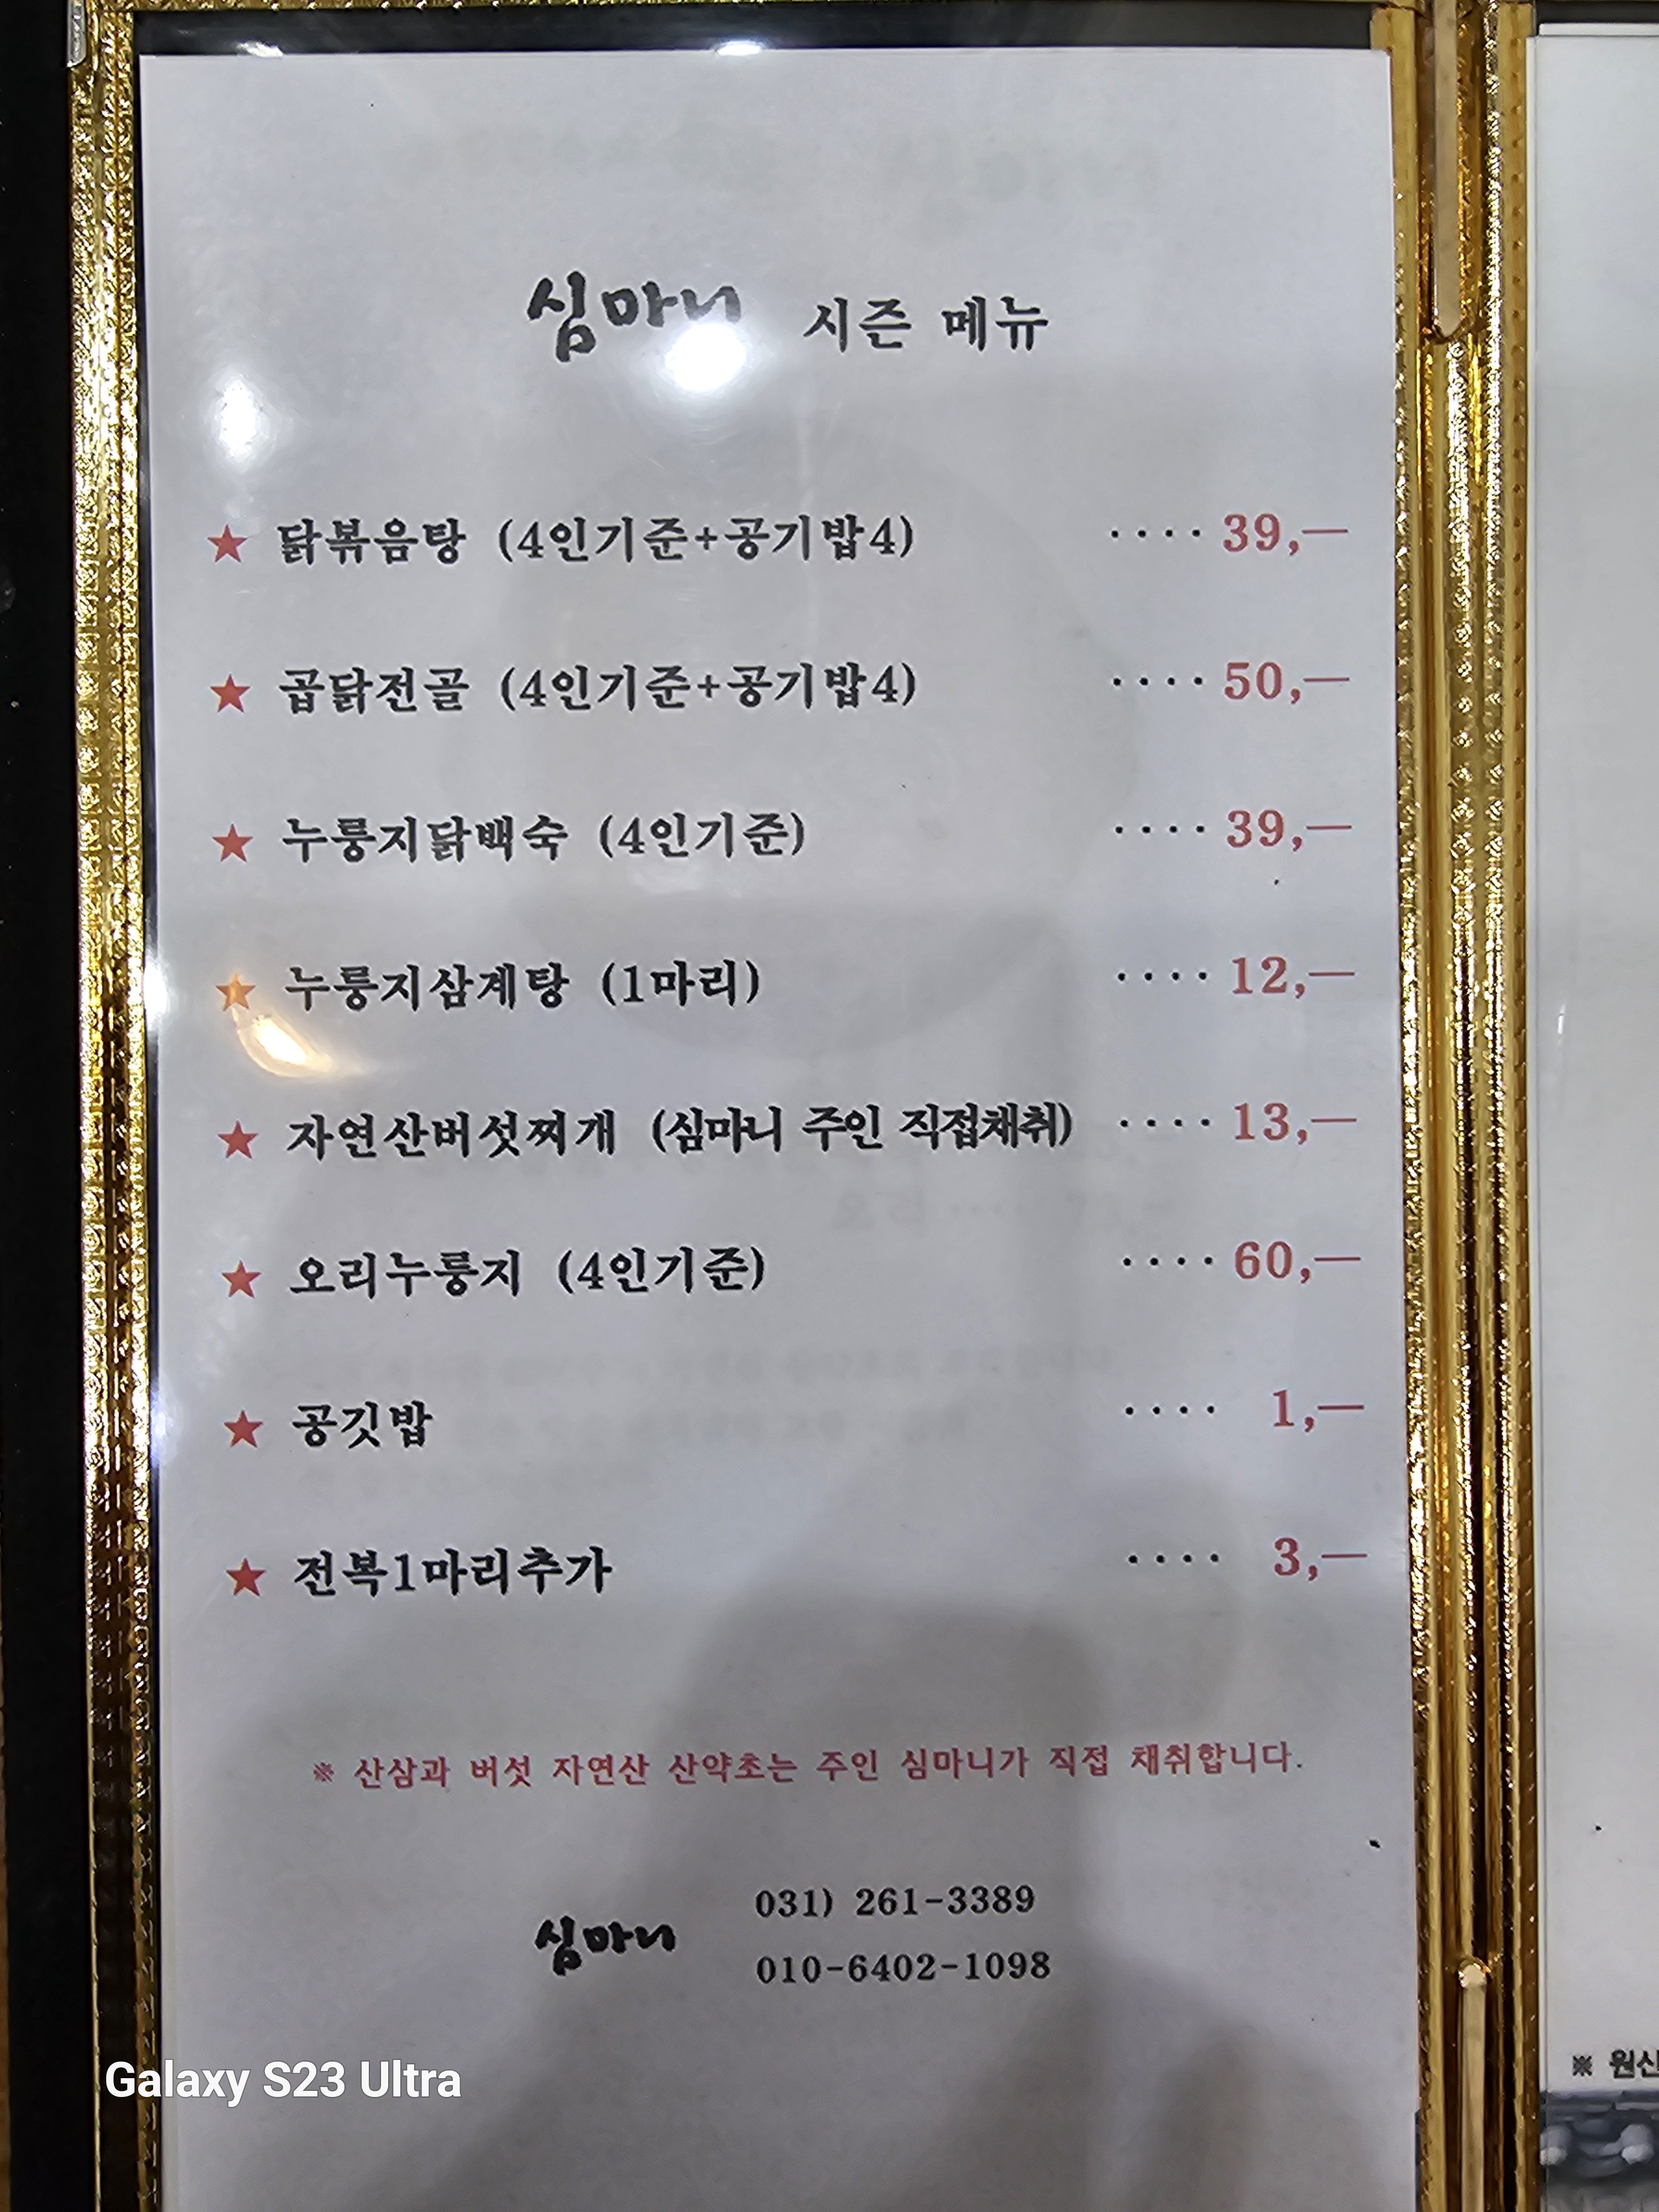 심마니 시즌 메뉴
★ 닭볶음탕 (4인기준+공기밥4) ···· 39,—
★ 곱닭전골 (4인기준+공기밥4) ···· 50,—
★ 누룽지닭백숙 (4인기준) ···· 39,—
★ 누룽지삼계탕 (1마리) ···· 12,—
★ 자연산버섯찌개 (심마니 주인 직접채취) ···· 13,—
★ 오리누룽지 (4인기준) ···· 60,—
★ 공깃밥 ···· 1,—
★ 전복1마리추가 ···· 3,—
※ 산삼과 버섯 자연산 산약초는 주인 심마니가 직접 채취합니다.
심마니
031) 261-3389
010-6402-1098
※ 원산
Galaxy S23 Ultra